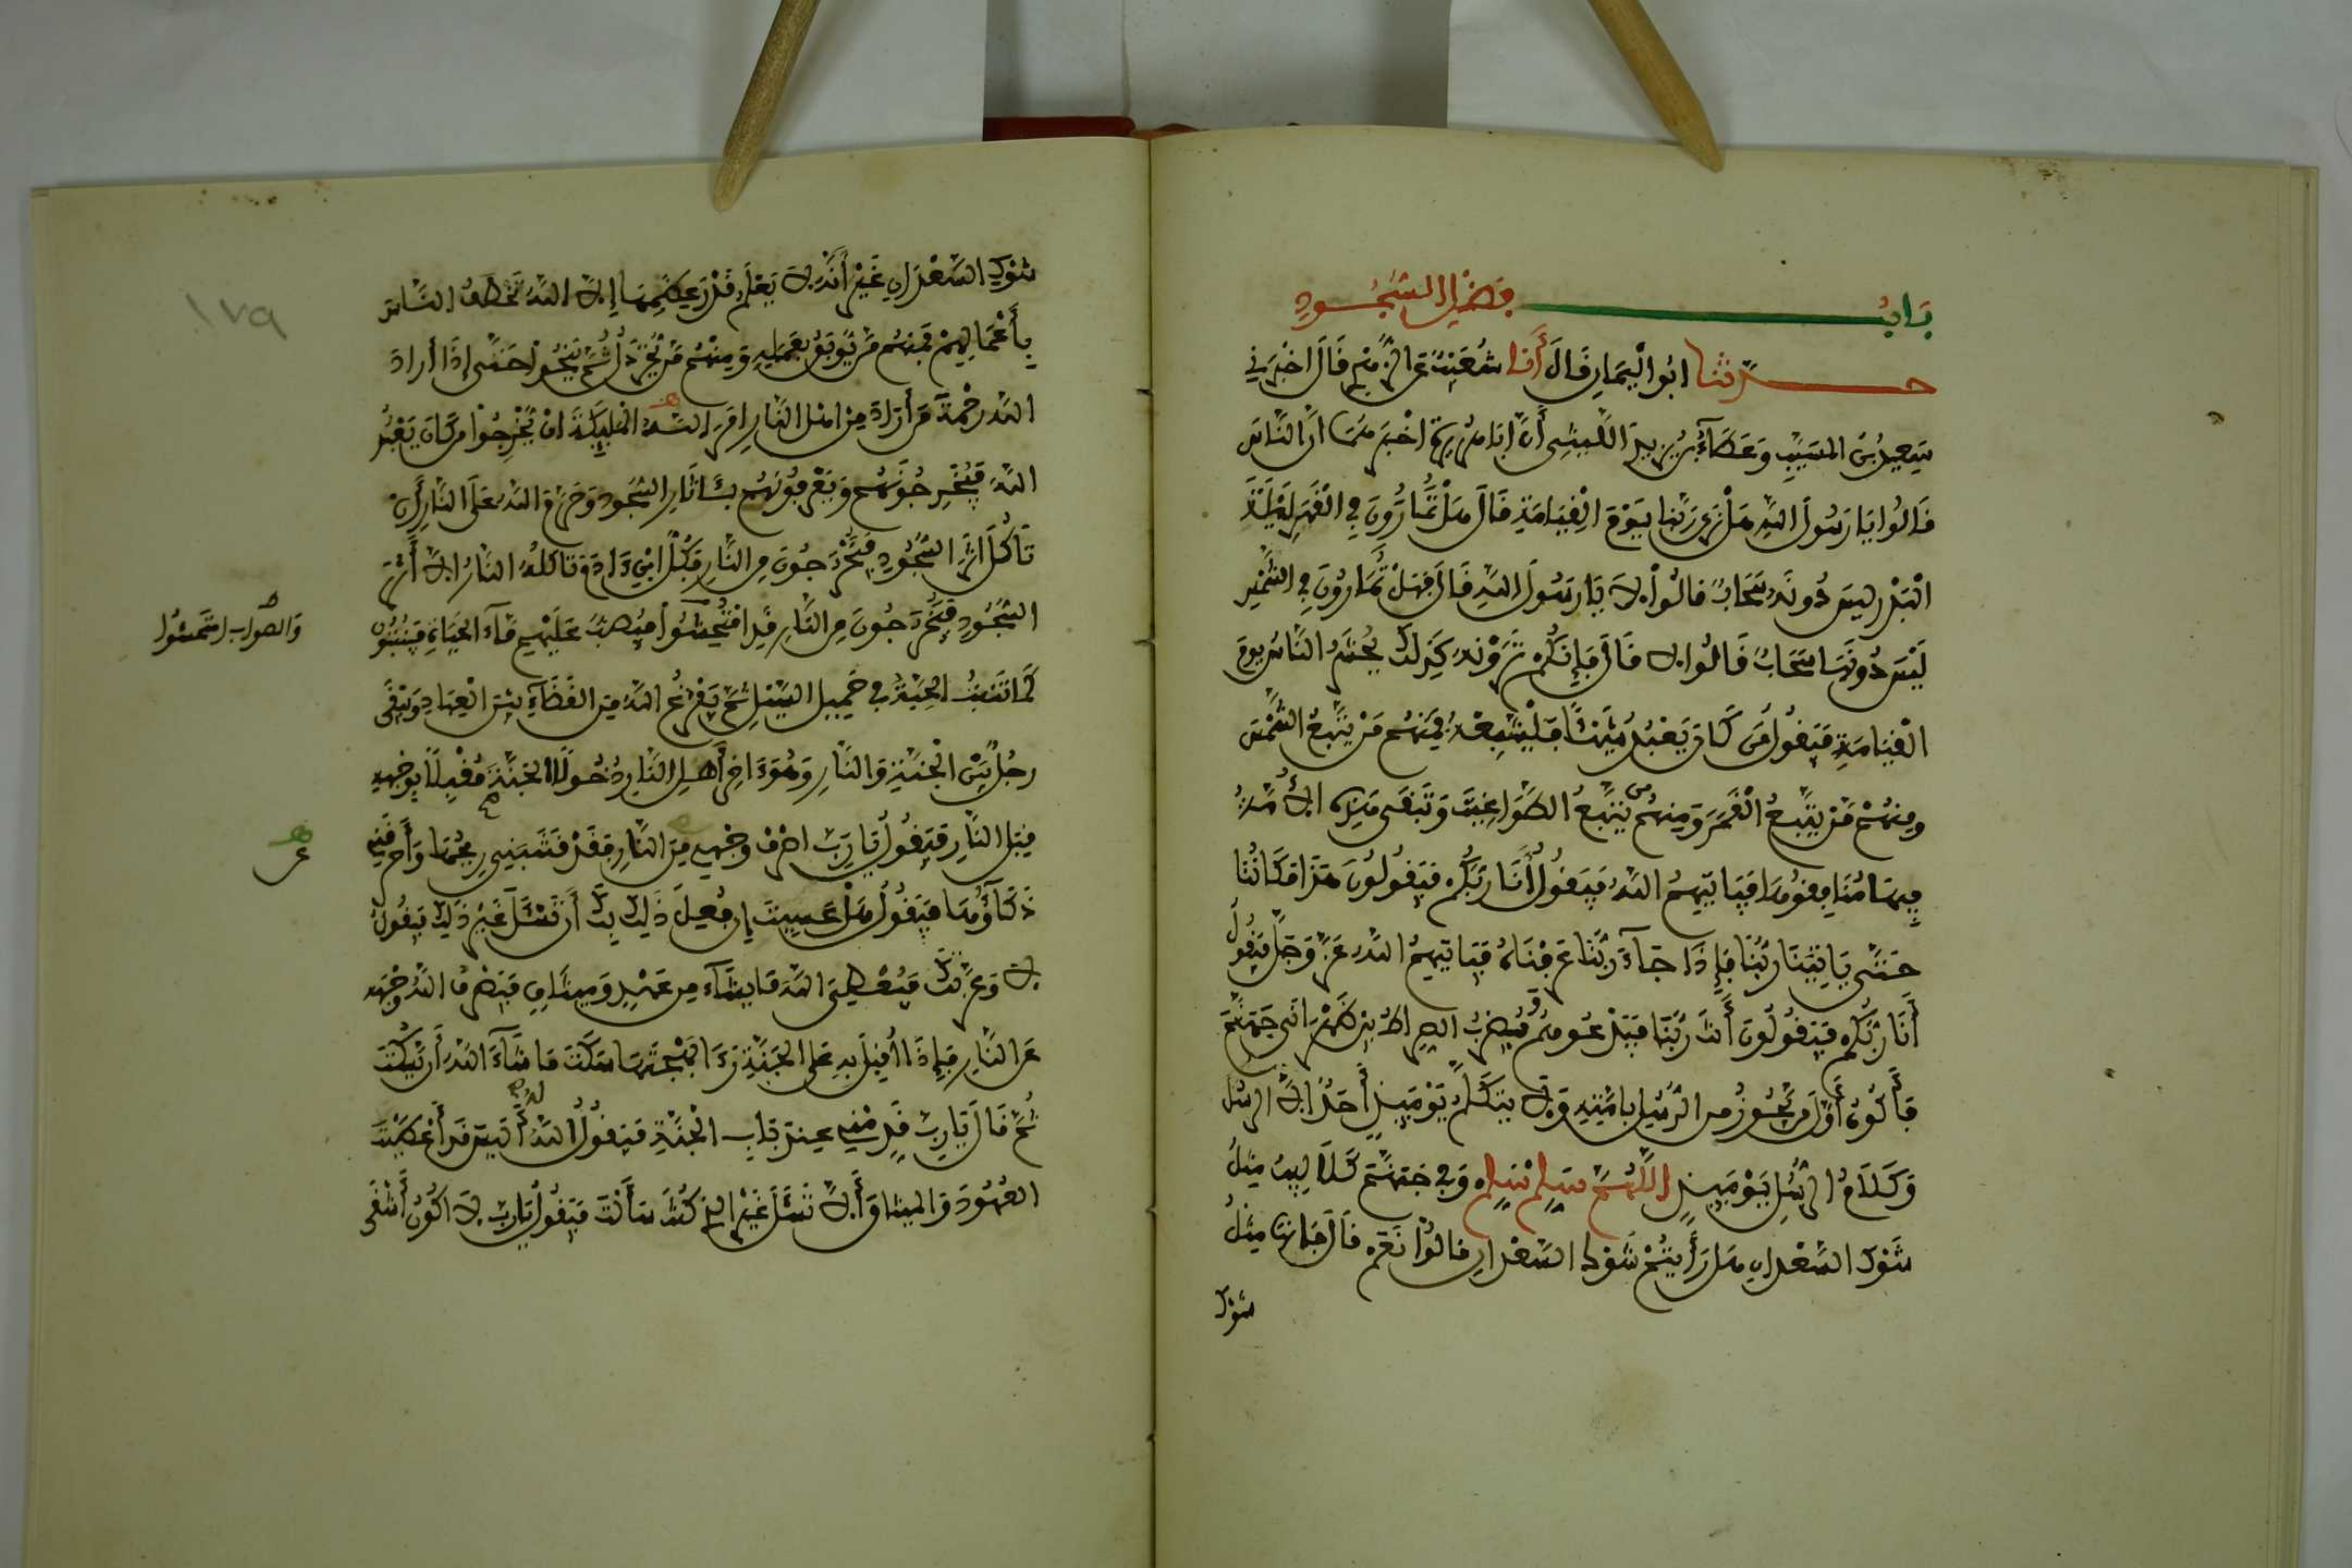 بَابُ فَضْلِ السُّجُودِ
حدّثنا ابُوا الْيَمَانِ قَالَ أَنَا شُعَيْبٌ عَنِ الزُّهْرِي قَالَ اخْبَرَنِي
سَعِيدُ بْنُ المسَيِّبِ وَعَطَاءُ بْنُ يزِيدَ اللَّيْثِي أَنَّ ابَا هُرَيْرَةَ اخْبَرَهُمَا انَّ النَّاسَ
قَالُوا يَا رَسُولَ اللهِ هَلْ نَرَى رَبَّنَا يَوْمَ الْقِيَامَةِ قَالَ هَلْ تُمَارُونَ فِي الْقَمَرِ لَيْلَةَ
الْبَدْرِ لَيسَ دُونَهُ سَحَابٌ قالُوْا لاَ يَا رَسُولَ اللهِ قَالَ فَهَلْ تُمَارُونَ فِي الشَّمْسِ
لَيْسَ دُونَهَا سَحَابٌ قَالُوا لا قَالَ فَإِنَّكُمْ تَرَوْنَهُ كَذَلِكَ يُحْشَرُ النَّاسُ يَوْمَ
الْقِيَامَةِ فَيَقُولُ مَنْ كَانَ يَعْبُدُ شَيْئًا فَلْيَتَّبِعْهُ فَمِنْهُمْ مَنْ يَتَّبِعُ الشَّمْسَ
وَمِنْهُمْ مَنْ يَتَّبِعُ الْقَمَرَ وَمِنْهُمْ من يَتَّبِعُ الطَّوَاغِيتَ وَتَبْقَى هَذِهِ الاُمَّةُ
فِيهَا مُنَافِقُوهَا فَيَاتِيهِمُ اللهُ فَيَقُولُ أَنَا رَبُّكُمْ فَيَقُولُونَ هَذَا مَكَانُنَا
حَتَّى يَاتِيَنَا رَبُّنَا فَإِذَا جَاءَ رَبُّنَا عَرَفْنَاهُ فَيَاتِيهِمُ اللهُ عَزَّ وَجَلَّ فَيَقُولُ
أَنَا رَبُّكُمْ فَيَقُولُونَ أَنْتَ رَبُّنَا فَيَدْعُوهُمْ فَيُضْرَبُ الصِّرَاطُ بَيْنَ ظَهْرَانَيْ جَهَنَّمَ
فَأَكُونُ أَوَّلَ مَنْ يَجُوزُ مِنَ الرُّسُلِ بِأُمَّتِهِ وَلا يَتَكَلَّمُ يَوْمَئِذٍ أَحَدٌ الاَّ الرسُلُ
وَكَلاَمُ الرُّسُلِ يَوْمَئِذٍ اللَّهُمَّ سَلِّمْ سَلِّمْ وَفِي جَهَنَّمَ كَلاَلِيبُ مِثْلُ
شَوْكِ السَّعْدَانِ هَلْ رَأَيْتُمْ شَوْكَ السَّعْدَانِ قَالُوْا نَعَمْ قَالَ فَإِنَّهَا مِثْلُ
شوْك
شَوْكِ السَّعْدَانِ غَيْرَ أَنَّهُ لاَ يَعْلَمُ قَدْرَ عِظَمِهَا إِلاَّ اللهُ تَخْطَفُ النَّاسَ
بِأَعْمَالِهِمْ فَمِنْهُمْ مَنْ يُوبَقُ بِعَمَلِهِ وَمِنْهُمْ مَنْ يُخَرْدَلُ ثُمَّ يَنْجُوا حَتَّى إِذَا أرادَ
اللهُ رَحْمَةَ مَنْ أَرَادَ مِنْ اهْلِ النَّارِ امَرَ اللهُ المَلَيِكَةَ انْ يُخْرِجُوْا مَنْ كَانَ يَعْبُدُ
اللهَ فَيُخْرِجُونَهُمْ وَيَعْرِفُونَهُمْ بِـئَاثَارِ السُّجُودِ وَحَرَّمَ اللهُ عَلَى النَّارِ أَنْ
تَأْكُلَ اثَرَ السُّجُودِ فَيَخْرُجُونَ مِنَ النَّارِ فَكُلُّ ابْنِ ءَادَمَ تَاكلُهُ النَّارُ الاَّ أَثَرَ
السُّجُودِ فَيَخْرُجُونَ مِنَ النَّارِ قَدِ امْتُحِشُوا فَيُصَبُّ عَلَيْهِمْ مَاءُ الحَيَاةِ فَيَنْبُتُونَ
وَالصوابُ امْتَحَشُوا
كَمَا تَنْبُتُ الحِبَّةُ فِي حَمِيلِ السَّيْلِ ثُمَّ يَفْرُغُ اللهُ مِنَ القَضَاءِ بَيْنَ الْعِبَادِ وَيَبْقَى
رَجُلٌ بَيْنَ الْجَنَّةِ وَالنَّارِ وَهُوَ ءَاخِرُ أَهْلِ النَّارِ دُخُولاً الجَنَّةَ مُقْبِلاً بِوَجْهِهِ
قِبَلَ النَّارِ فَيَقُولُ يَا رَبِّ اصْرِفْ وَجْهِي مِنَ النَّارِ فَقَدْ قَشَبَنِي رِيحُهَا وَأَحْرَقَنِي
ذَكَاؤُهَا فَيَقُولُ هَلْ عَسَيْتَ إِن فُعِلَ ذَلِكَ بِكَ أَنْ تَسْئَلَ غَيْرَ ذَلِكَ فَيَقُولُ
لا وَعِزَّتِكَ فَيُعْطِي اللهَ مَا يَشَاءُ مِنْ عَهْدٍ وَمِيثَاقٍ فَيَصْرِفُ اللهُ وَجْهَهُ
عَنِ النَّارِ فَإِذَا أَقْبَلَ بِهِ عَلَى الجَنَّةِ رَءَا بَهْجَتَهَا سَكَتَ مَا شَاءَ اللهُ أَنْ يَسْكُتَ
ثُمَّ قَالَ يَا رَبِّ قَدِّمْنِي عِنْدَ بَابِ الْجَنَّةِ فَيَقُولُ اللهُ لهُ أَلَيْسَ قَدْ أَعْطَيْتَ
العُهُودَ وَالمِيثَاقَ أَلاَّ تَسْئَلَ غَيْرَ الذِي كُنْتَ سَأَلْتَ فَيَقُولُ يَا رَبِّ لاَ اكُونُ أَشْقَى
١٧٩